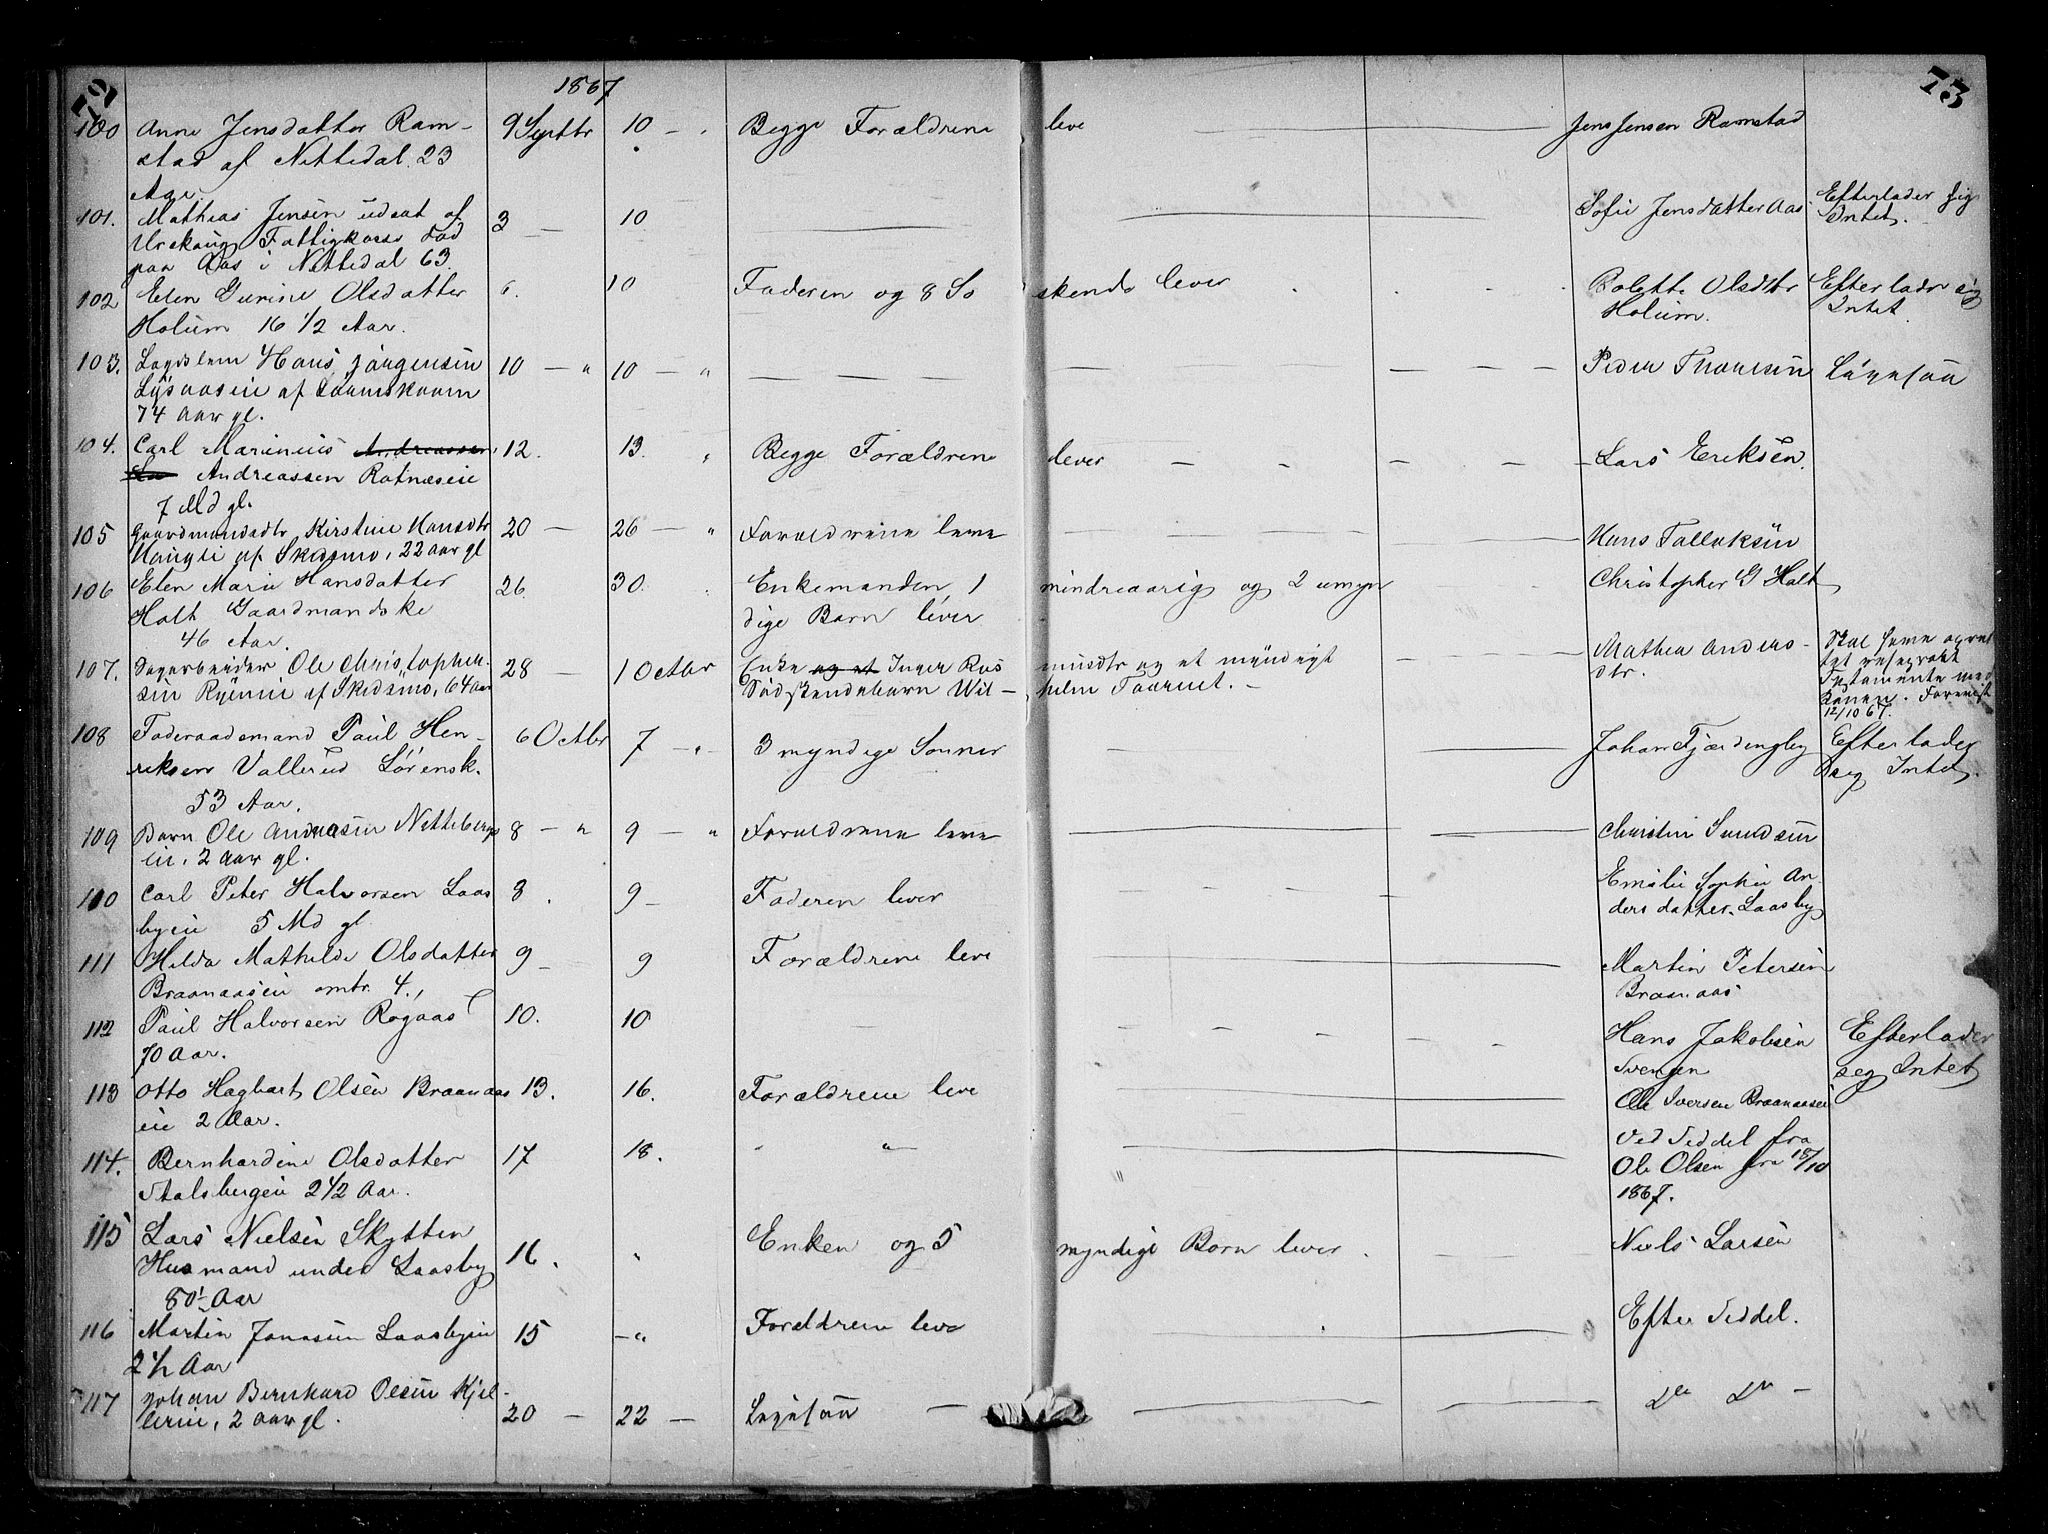 72
1867
73
100 Anne Jensdatter Ram- 9 Septbr 10 - Begge Forældrene leve Jens Jensen Ramstad
stad af Nittedal. 23
Aar
101. Mathias Jensen udsat af 3 - 10 Sofie Jensdatter Aas. Efterlader sig
Urskoug Fattigkasse død Intet.
paa Aas i Nittedal 63.
102 Elen Gurine Olsdatter 6. 10 Faderen og 8 Sø skende lever Bolette Olsdtr Efterlader sig
Holum 16 1/2 Aar. Holum. Intet.
103. Lægdslem Hans Jørgensen 10 - " 10 - " Peder Thoresen Ligesaa
af
74 Aar gl.
104. Carl Marinius Andreassen 12. 13. " Begge Forældrene lever Lars Eriksen.
Andreassen Rotnæseie
7 Md gl.
105 Gaardmandsdtr Kirstine Hansdtr 20 - 26 - " Forældrene leve Hans Tollefsen
af Skedsmo, 22 Aar gl
106 Elen Marie Hansdatter 26. 30. Enkemanden, 1 mindreaarig og 2 umyn Christopher G Holt
Holt Gaardmandske dige Børn lever
46 Aar.
107. Sagarbeider Ole Christopher- 28 - 1 Octbr Enke og et Inger Ras musdtr og et myndigt Mathea Anders- Skal have opret
sen af Skedsmo, 64 Aar Sødskendebarn Wil- helm - dtr. tet
Testamente med
Konen. Forevist
12/10 67.
108 Føderaadsmand Paul Hen- 6 Octbr 7 - " - 3 myndige Sønner Johan Fjærdingby Efterlader
riksen Vallerud Lörensk. seg Intet.
53 Aar.
109 Barn Ole Andreasen Nitteberg 8 - " 9 - " Forældrene leve
eie, 2 Aar gl.
110 Carl Peter Halvorsen Laas 8. 9 - Faderen lever Emilie Sophie An-
byeie 5 Md gl ders datter. Laasby
111 Hilda Mathilde Olsdatter 9 - 9 Forældrene leve Martin Petersen
Braanaaseie omtr. 4., - Braanaas
112 Paul Halvorsen Rogaas 10. 10 Hans Jakobsen Efterlader
70 Aar. Svengen seg Intet
113 Otto Hagbart Olsen Braanaas 13. 16. Forældrene leve Ole Iversen Braanaaseie
eie 2 Aar.
114. Bernhardine Olsdatter 17 18. " " Ved Seddel fra
Stalsbergeie 2 1/2 Aar. Ole Olsen fra 18/10
1867.
115 Lars Nielsen Skytten Enken og 5 myndige Børn lever. Niels Larsen
Husmand under Laasby 16. "
80 Aar
116 Martin Jonasen Laasbyeie 15 - " Forældrene leve Efter Seddel.
2 1/2 Aar
117 Johan Bernhard Olsen Kjel- 20 - 22 - Ligesaa - Do Do -
lerie, 2 Aar gl.